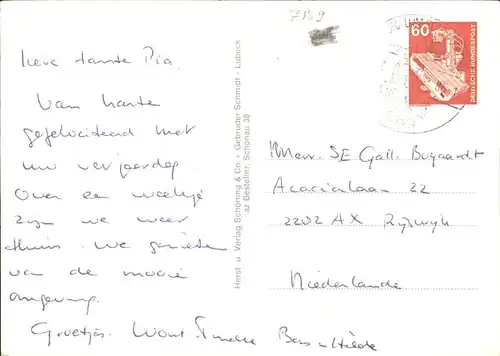 7589
lieve tante Pia.
Van harte
gefeliciteerd met
uw verjaardag
Over een weekje
zijn we weer
thuis. We genieten
van de mooie
omgeving.
Groetjes. Wout. Tineke Bas en Hilde
Herst. u. Verlag Schöning & Co + Gebrüder Schmidt · Lübeck
az Bestellnr. Schönau 38
60
DEUTSCHE BUNDESPOST
Mevr. SE Gall. Bogaardt
Acacialaan 22
2282 AX Rijswijk
Niederlande